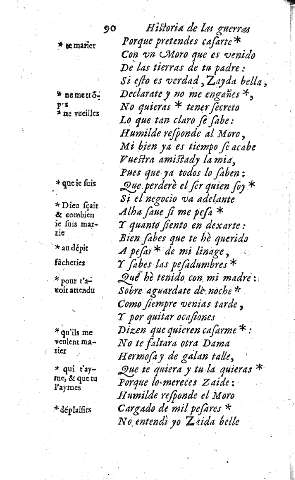 90 Historia de las guerras
Porque pretendes casarte *
Con vn Moro que es venido
De las tierras de tu padre:
Si esto es verdad, Zayda bella,
Declarate y no me engañes *,
No quieras * tener secreto
Lo que tan claro se sabe:
Humilde responde al Moro,
Mi bien ya es tiempo se acabe
Vuestra amistad y la mia,
Pues que ya todos lo saben:
Que perderè el ser quien soy *
Si el negocio va adelante
Alha saue si me pesa *
Y quanto siento en dexarte:
Bien sabes que te hè querido
A pesar * de mi linage,
Y sabes las pesadumbres *
Què hè tenido con mi madre:
Sobre aguardate de noche *
Como siempre venias tarde,
Y por quitar ocasiones
Dizen que quieren casarme *:
No te faltara otra Dama
Hermosa y de galan talle,
Que te quiera y tu la quieras *
Porque lo mereces Zaide:
Humilde responde el Moro
Cargado de mil pesares *
No entendi yo Zaida belle
* te marier
* ne me trõ-
pes
* ne veilles
* que ie suis
* Dieu sçait
& combien
ie suis mar-
rie
* au dépit
fâcheries
* pour t'a-
voit attendu
* qu'ils me
veulent ma-
rier
* qui t'ay-
me, & que tu
l'aymes
* déplaisirs